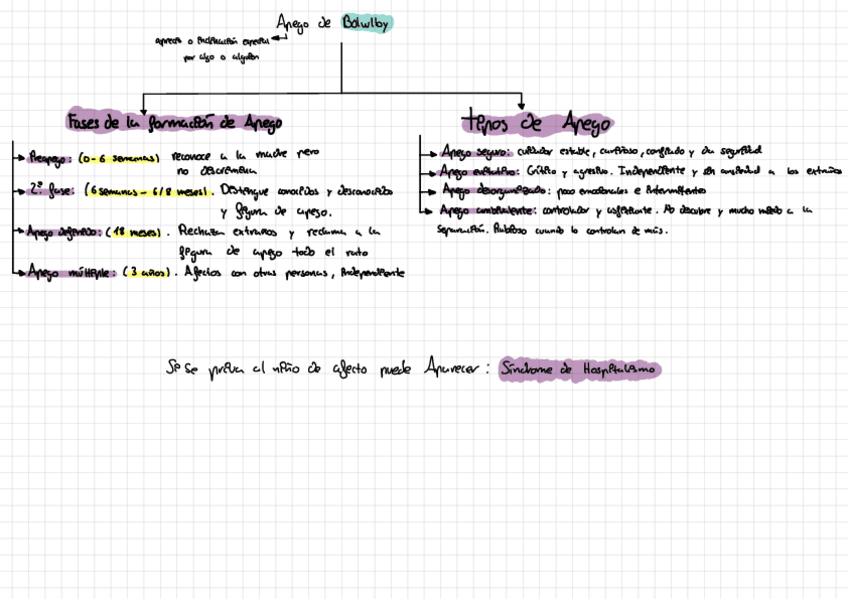 Apego de Bolwlby
aprecio o inclinación especial
por algo o alguien
Fases de la formación de Apego
Tipos de Apego
Preapego: (0-6 semanas) reconoce a la madre pero
no discrimina
2ª fase: (6 semanas - 6/8 meses). Distingue conocidos y desconocidos
y figura de apego.
Apego definido: (18 meses). Rechazan extraños y reclama a la
figura de apego todo el rato
Apego múltiple: (3 años). Afectos con otras personas, independiente
Apego seguro: cuidador estable, cariñoso, confiado y da seguridad
Apego evitativo: Crítico y agresivo. Independiente y sin ansiedad a los extraños
Apego desorganizado: poco emocionales e intermitentes
Apego ambivalente: controlador y asfixiante. No descubre y mucho miedo a la
separación. Rabioso cuando lo controlan de más.
Si se priva al niño de afecto puede Aparecer: Síndrome de Hospitalismo